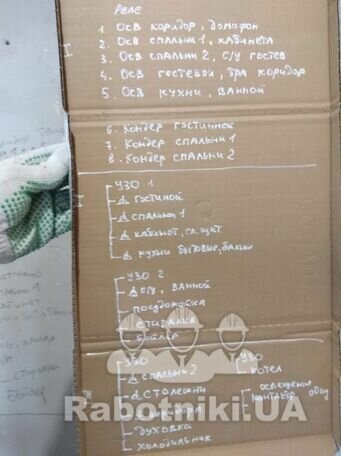 Реле
1. Осв коридор, домофон
2. Осв спальни 1, кабинета
3. Осв спальни 2, с/у гостев
4. Осв гостевой, бра коридор
5. Осв кухни, ванной
I
6. Кондер гостиннои
7. Кондер спальни 1
8. Кондер спальни 2
I
УЗО 1
гостиной
спальни 1
кабинет, сл. щит
кухни бытовые, балкон
УЗО 2
с/у, ванной
посудомойка
стиралка
бойлер
УЗО
спальни 2
столешни
духовка
холодильник
УЗО
котел
освещение
контактор общ
Rabotniki.UA